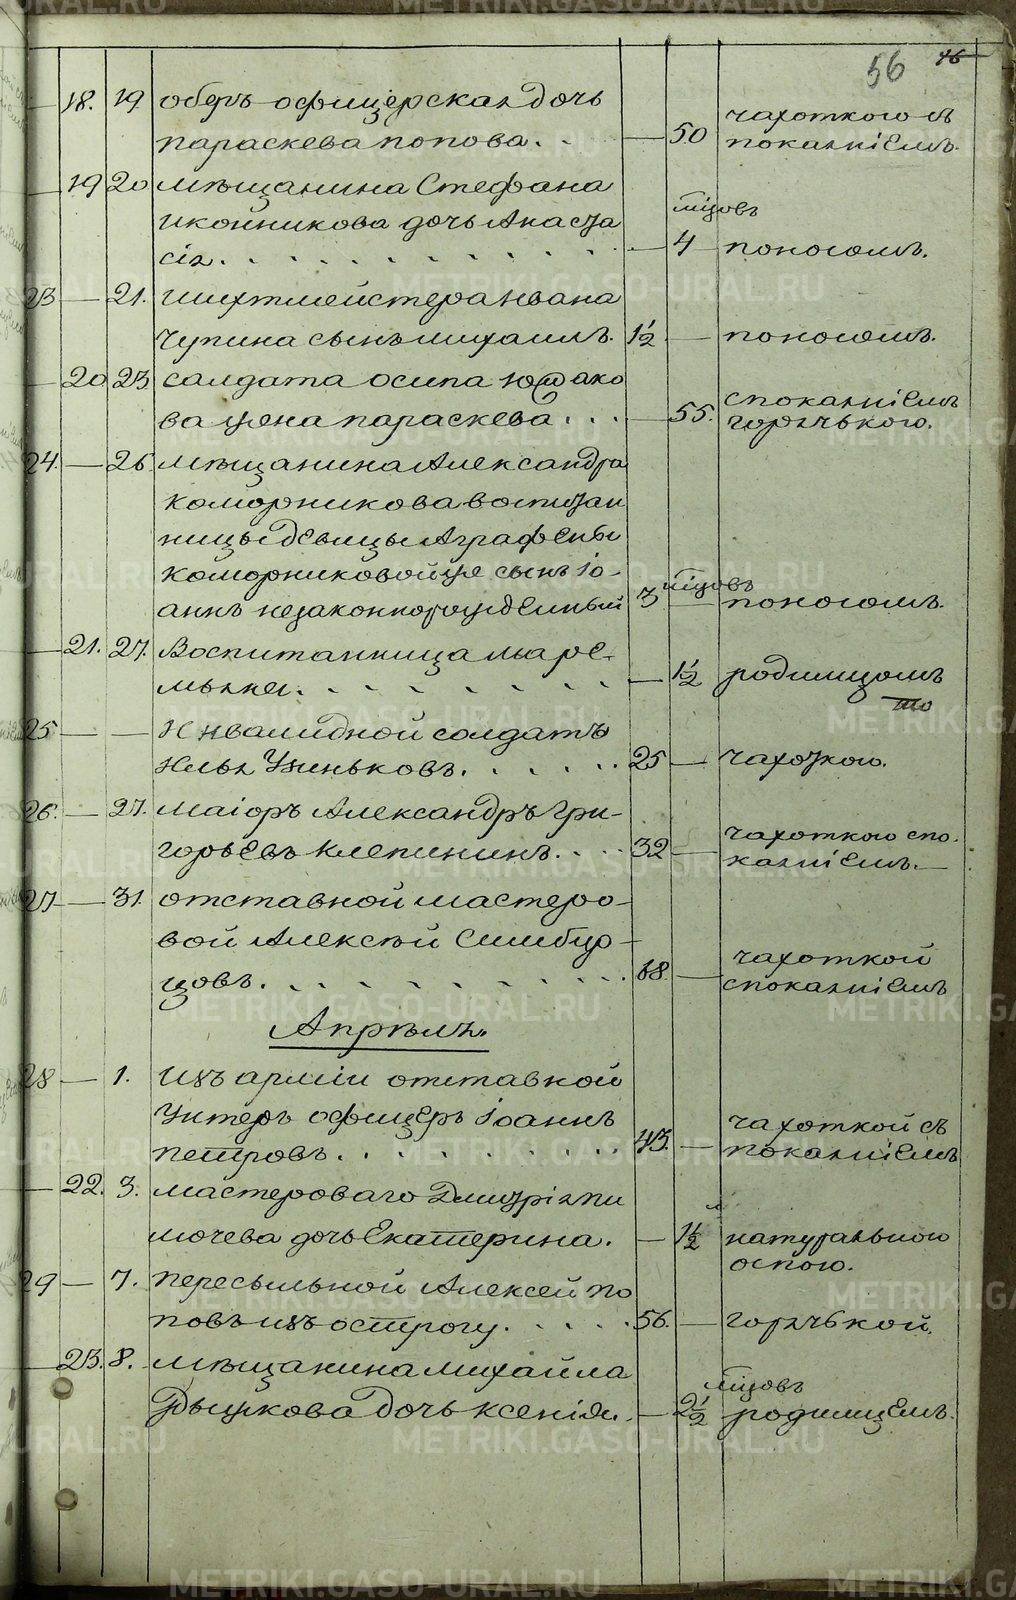 56 46
18. 19 оберъ офицерская дочь
параскева попова. — 50 чахоткою съ
покаяніемъ.
19 20 мѣщанина Стефана
мцовъ
иконникова дочь Анаста
сія. — 4 поносомъ.
23 — 21. шихтмейстера Ивана
Чупина сынъ михаилъ. 1½ — поносомъ.
20 23 салдата осипа
ва жена параскева. — 55. спокаяніемъ
горячькою.
24. — 26 мѣщанина Александра
коморникова воспитан
ницы дѣвицы Аграфены
коморниковой же сынъ Іо-
мцовъ
аннъ незаконнорожденный 3 — поносомъ.
21. 27. Воспитанница маре-
мьяна. — 1½ родимцомъ
25 — — Инвалидной солдатъ
Илья Ушньковъ. 25 — чахоткою.
26. — 27. маіоръ Александръ Гри-
горьевъ клепининъ. 32 — чахоткою спо-
каяніемъ.
27 — 31. отставной мастеро-
вой Алексѣй Симбир-
цовъ. 68. — чахоткой
спокаяніемъ
Апрѣль.
28 — 1. Изъ арміи отставкой
Унтеръ офицеръ Іоаннъ
петровъ. 43. — чахоткой съ
покаяніемъ
22. 3. мастероваго Дмитрія пи
мочева дочь Екатерина. — 1½ натуральною
оспою.
29 — 7. пересыльной Алексей по
повъ изъ острогу. 56. — горячькой.
23. 8. мѣщанина михайла
мцовъ
Рыжкова дочь ксенія. — 2½ родимцемъ.
METRIKI.GASO-URAL.RU